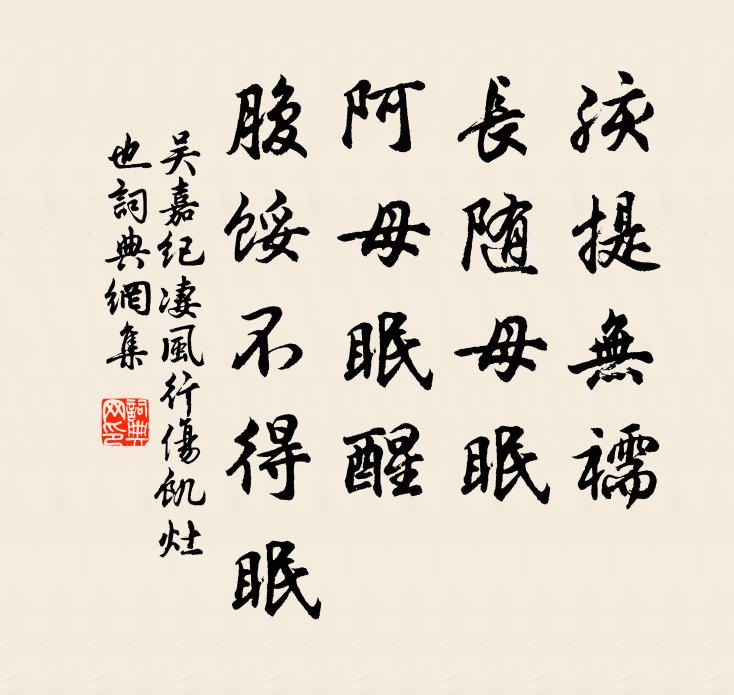 孩提無襦
長随母眠
阿母眠醒
腹餒不得眠
吴嘉纪淒風行傷飢灶
也詞典網集
詞典网印